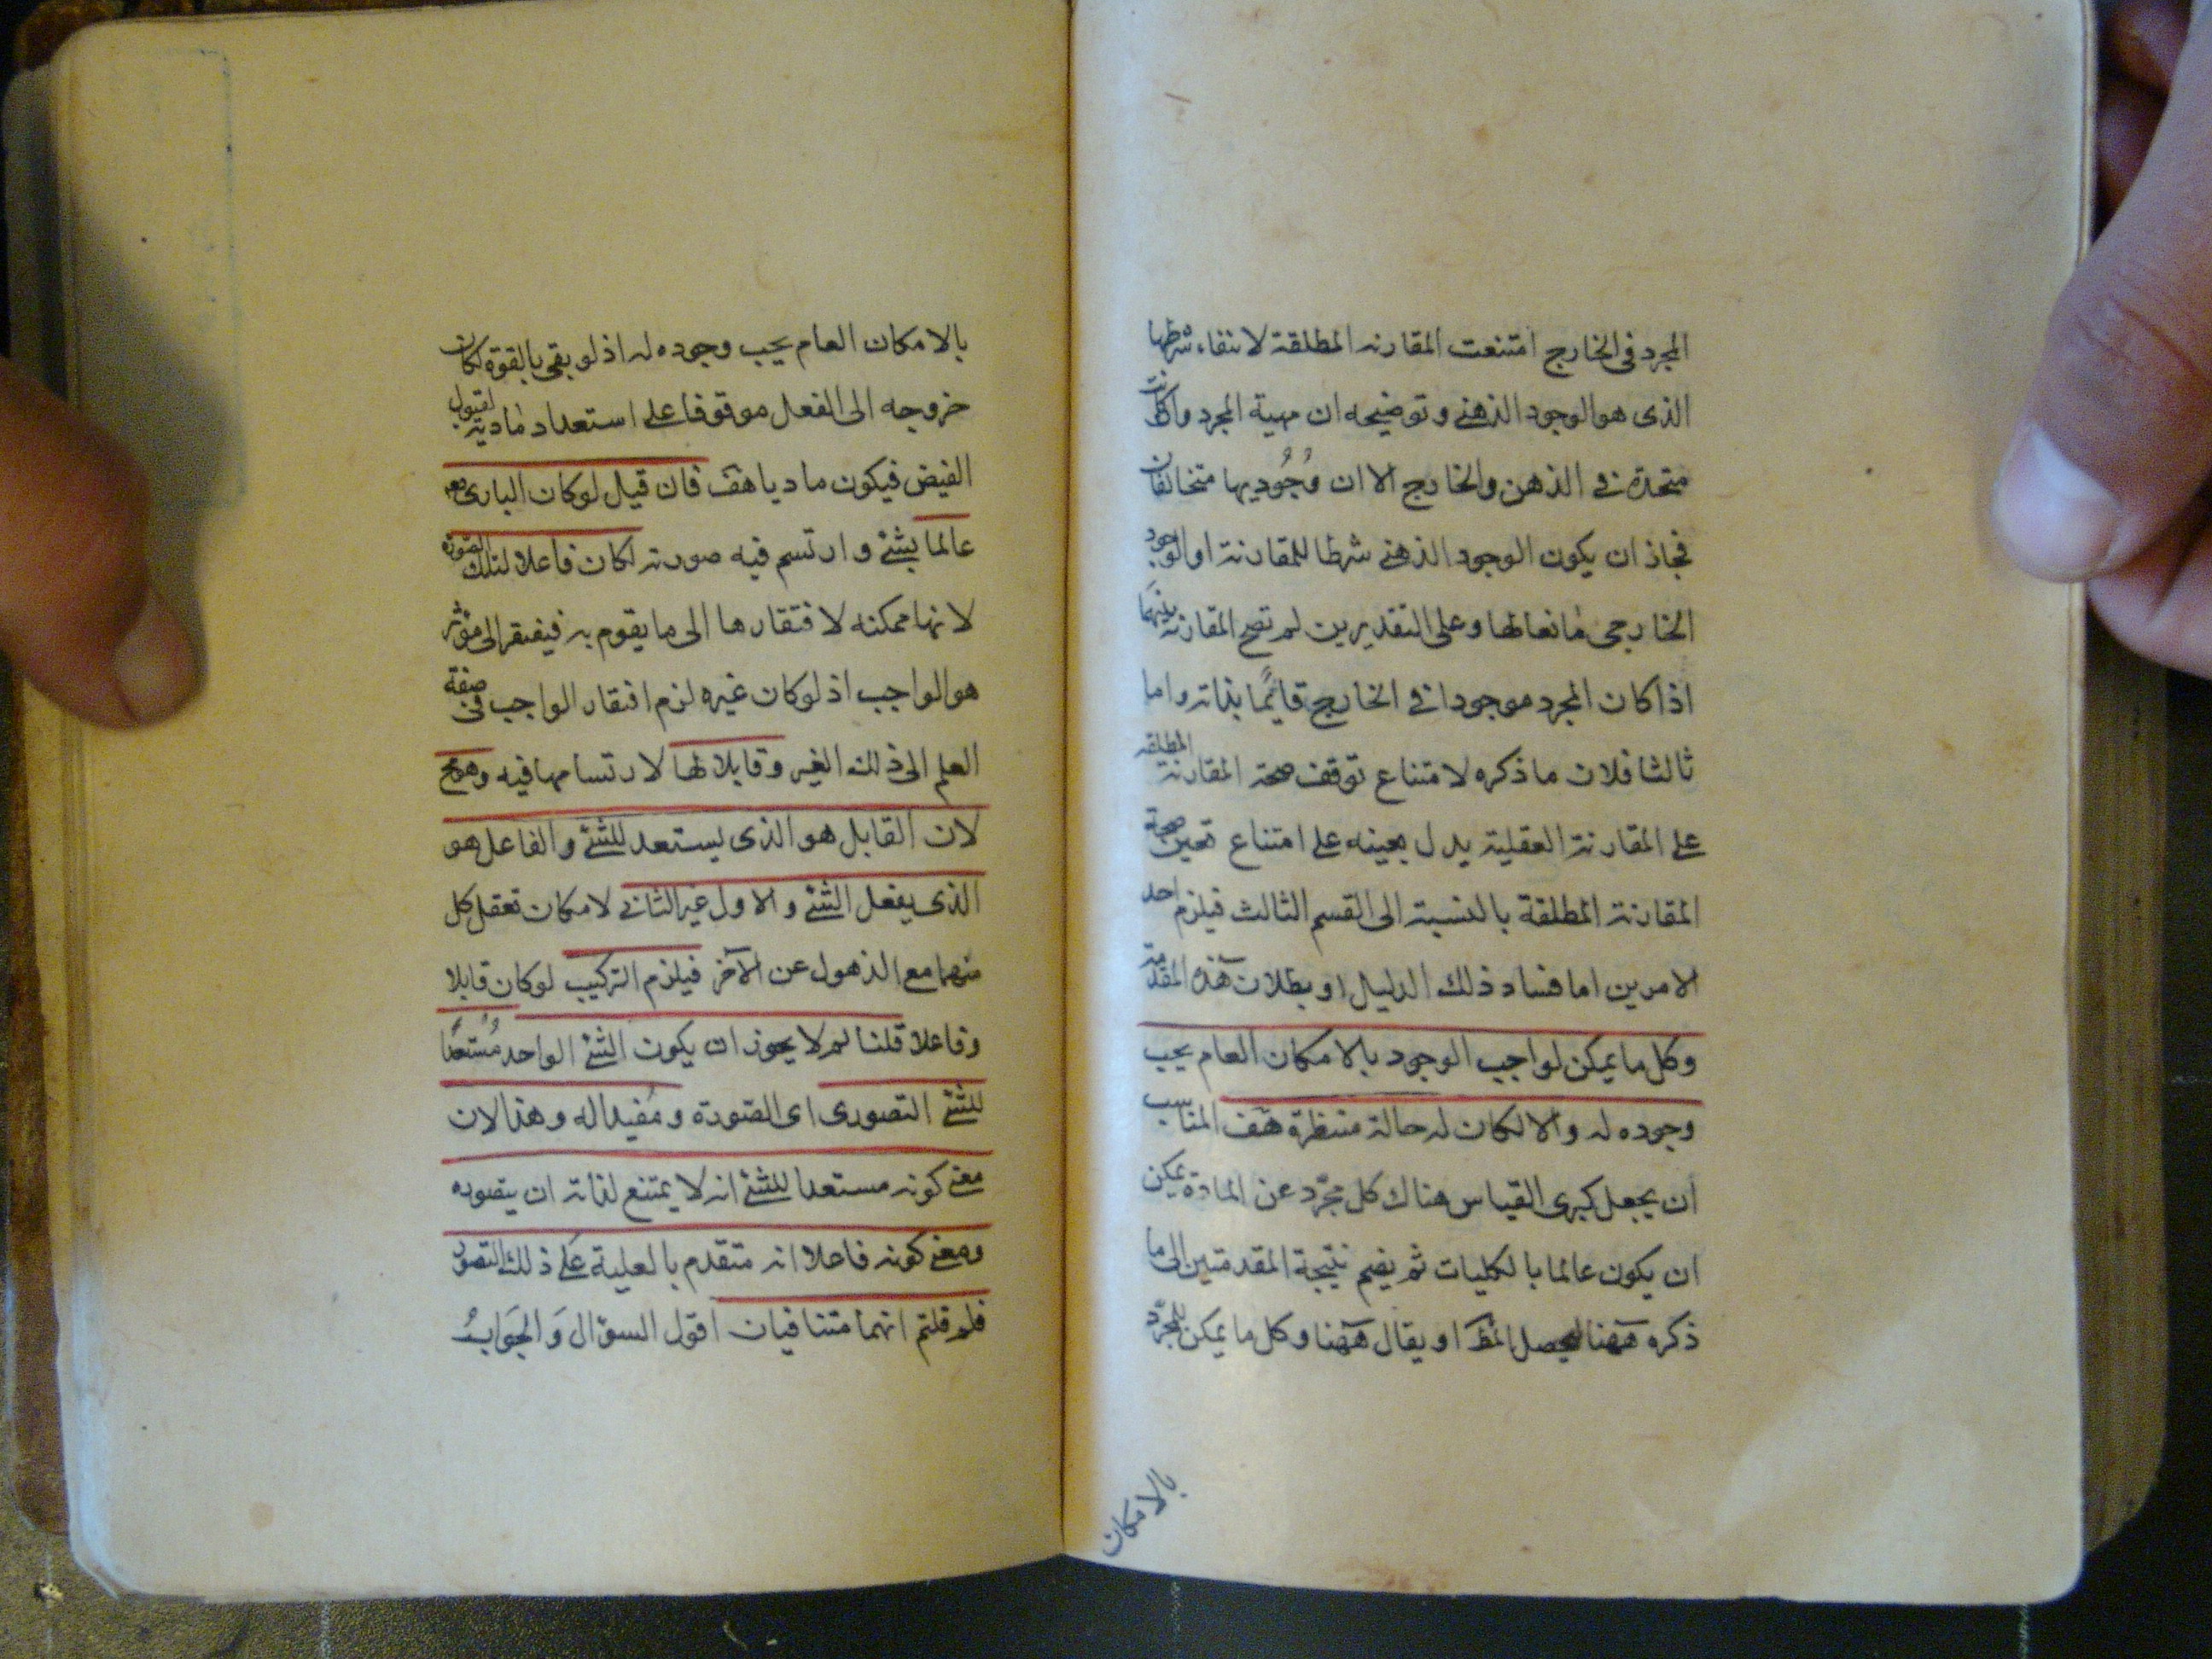 المجرد فى الخارج امتنعت المقارنه المطلقة لانتفاء شرطها
الذى هو الوجود الذهنى وتوضيحه ان مهية المجرد وان كانت
متحدة فى الذهن والخارج الا ان وُجُوديها متخالفان
فجاز ان يكون الوجود الذهنى شرطا للمقارنة او الوجود
الخارجى مانعا لها وعلى التقديرين لم تصح المقارنة بينهما
اذا كان المجرد موجودا فى الخارج قايمًا بذاته واما
ثالثا فلان ما ذكره لامتناع توقف صحة المقارنة المطلقه
على المقارنة العقلية يدل بعينه على امتناع صحة
المقارنة المطلقة بالنسبة الى القسم الثالث فيلزم احد
الامرين اما فساد ذلك الدليل او بطلان هذه المقدمة
وكل ما يمكن لواجب الوجود بالامكان العام يجب
وجوده له والا لكان له حالة منتظرة هف المناسب
ان يجعل كبرى القياس هناك كل مجرّد عن المادة يمكن
ان يكون عالما بالكليات ثم يضم نتيجة المقدمتين الى ما
ذكره ههنا ليحصل المط او يقال ههنا وكل ما يمكن للمجرّد
بالامكان
بالامكان العام يجب وجوده له اذ لو بقى بالقوة لكان
خروجه الى الفعل موقوفا على استعداد مادية لقبول
الفيض فيكون ماديا هف فان قيل لو كان البارى تعم
عالما بشئ وارتسم فيه صورته لكان فاعلا لتلك الصورة
لانها ممكنه لافتقارها الى ما يقوم به فيفتقر الى مؤثر
هو الواجب اذ لو كان غيره لزم افتقار الواجب فى صفة
العلم الى ذلك الغير وقابلا لها لارتسامها فيه وهو مح
لان القابل هو الذى يستعد للشئ والفاعل هو
الذى يفعل الشئ والاول غير الثانى لامكان تعقل كل
منهما مع الذهول عن الآخر فيلزم التركيب لو كان قابلا
وفاعلا قلنا لم لا يجوز ان يكون الشئ الواحد مُستعدًا
للشئ التصورى اى الصورة ومفيدا له وهذا لان
معنى كونه مستعدا للشئ انه لا يمتنع لذاته ان يتصوره
ومعنى كونه فاعلا انه متقدم بالعلية على ذلك التصور
فلم قلتم انهما متنافيان اقول السوّال وَالجَوابُ